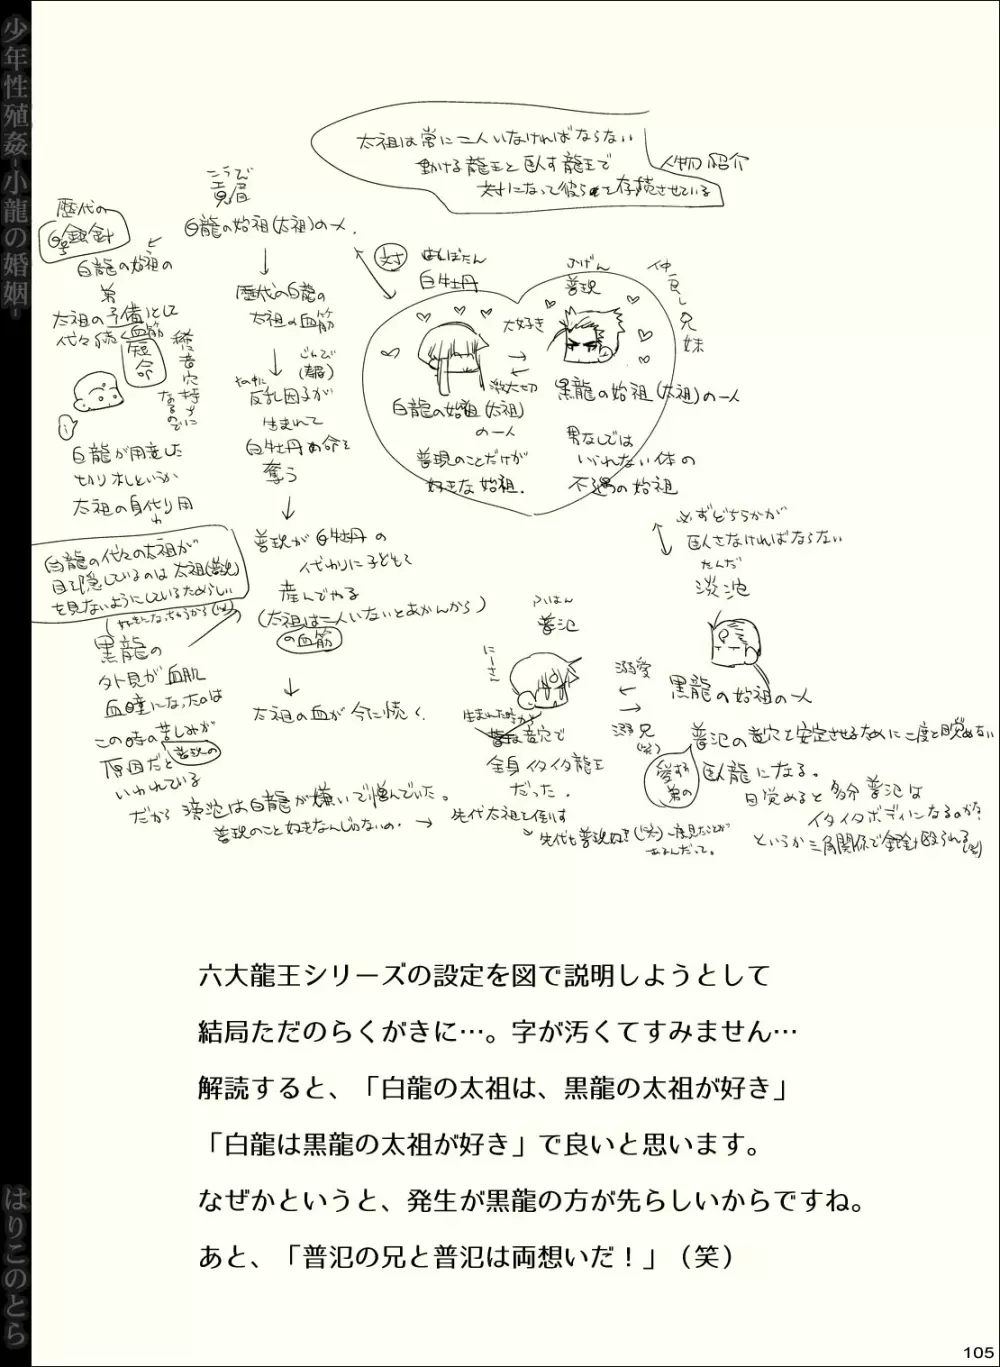 少年性殖姦-小龍の婚姻-
太祖は常に二人いなければならない
動ける龍王と臥す龍王で
対になって彼らを存続させている
人物紹介
白龍の始祖(太祖)の一人
歴代の
白龍の始祖の
弟
太祖の予備として
代々続く血筋
短命
白龍が用意した
切り札というか
太祖の身代り用
歴代の白龍の
太祖の血筋
反乱因子が
生まれて
白牡丹の命を
奪う
普現が白牡丹の
代わりに子どもを
産んでやる
(太祖は二人いないとあかんから)
の血筋
太祖の血が今に続く
対
はくぼたん
白牡丹
ふげん
普現
仲良し兄妹
大好き
激大切
白龍の始祖(太祖)
の一人
普現のことだけが
好きな始祖.
黒龍の始祖(太祖)の一人
男なしでは
いられない体の
不遇の始祖
必ずどちらかが
臥さなければならない
たんだ
淡沲
黒龍の始祖の一人
ふはん
普氾
にーさん
溺愛
溺兄
(笑)
愛する
弟の
全身イタイタ龍王
だった.
普氾の竜穴を安定させるために二度と目覚めない
臥龍になる。
目覚めると多分普氾は
イタイタボディになるのか?
白龍の代々の太祖が
目を隠しているのは太祖(普現)
を見ないようにしているためらしい
黒龍の
外見が血肌
血瞳になったのは
この時の苦しみが
普現の
原因だと
いわれている
普現のこと好きなんじゃないの.
先代太祖を倒す
六大龍王シリーズの設定を図で説明しようとして
結局ただのらくがきに…。字が汚くてすみません…
解読すると、「白龍の太祖は、黒龍の太祖が好き」
「白龍は黒龍の太祖が好き」で良いと思います。
なぜかというと、発生が黒龍の方が先らしいからですね。
あと、「普氾の兄と普氾は両想いだ！」（笑）
はりこのとら
105